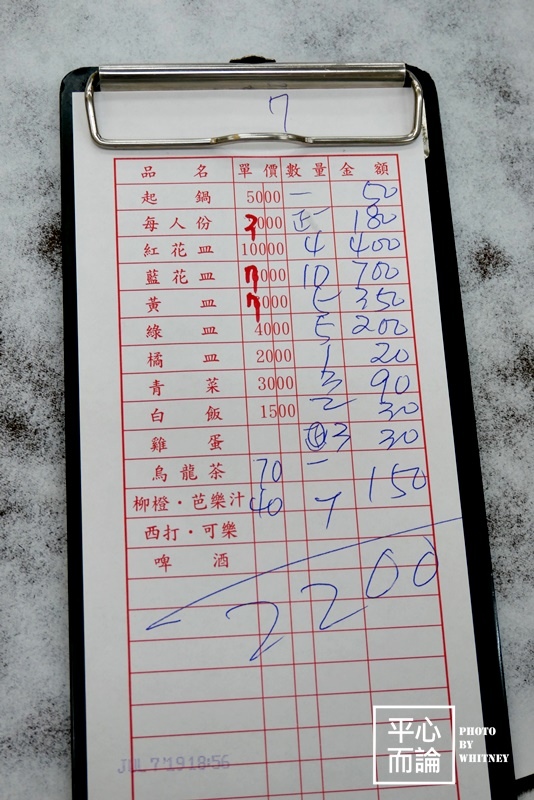 7
品名 單價 數量 金額
起鍋 5000 一 50
每人份 3000 正一 180
紅花皿 10000 4 400
藍花皿 7000 10 700
黃皿 7000 5 350
綠皿 4000 5 200
橘皿 2000 1 20
青菜 3000 3 90
白飯 1500 2 30
雞蛋 3 30
烏龍茶 70 一
柳橙・芭樂汁 40 150
西打・可樂
啤酒
2200
JUL 7'19 18:56
平心而論
PHOTO
BY
WHITNEY